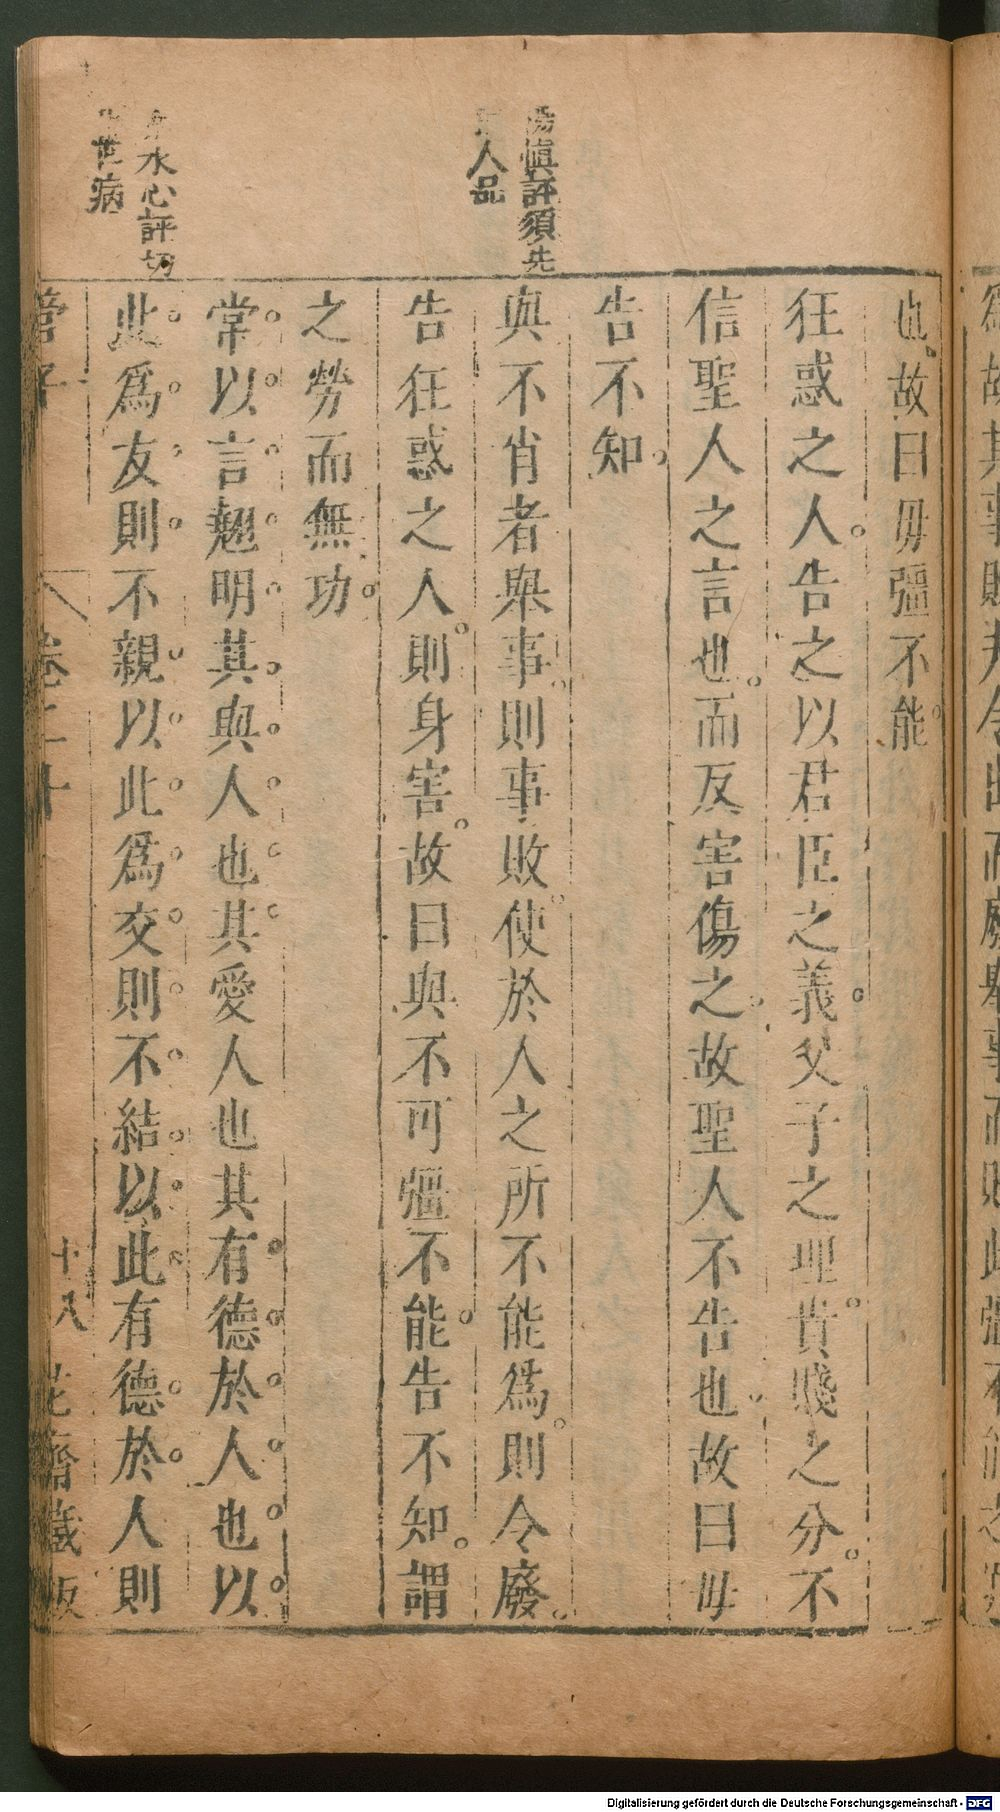 也故曰毋彊不能
狂惑之人告之以君臣之義父子之理貴賤之分不
信聖人之言也而反害傷之故聖人不告也故曰毋
告不知
與不肖者舉事則事敗使於人之所不能爲則令廢
告狂惑之人則身害故曰與不可彊不能告不知謂
之勞而無功
常以言翹明其與人也其愛人也其有德於人也以
此爲友則不親以此爲交則不結以此有德於人則
慎評須先
人品
水心評切
世病
管子
卷二十
十八
花齋藏板
Digitalisierung gefördert durch die Deutsche Forschungsgemeinschaft - DFG